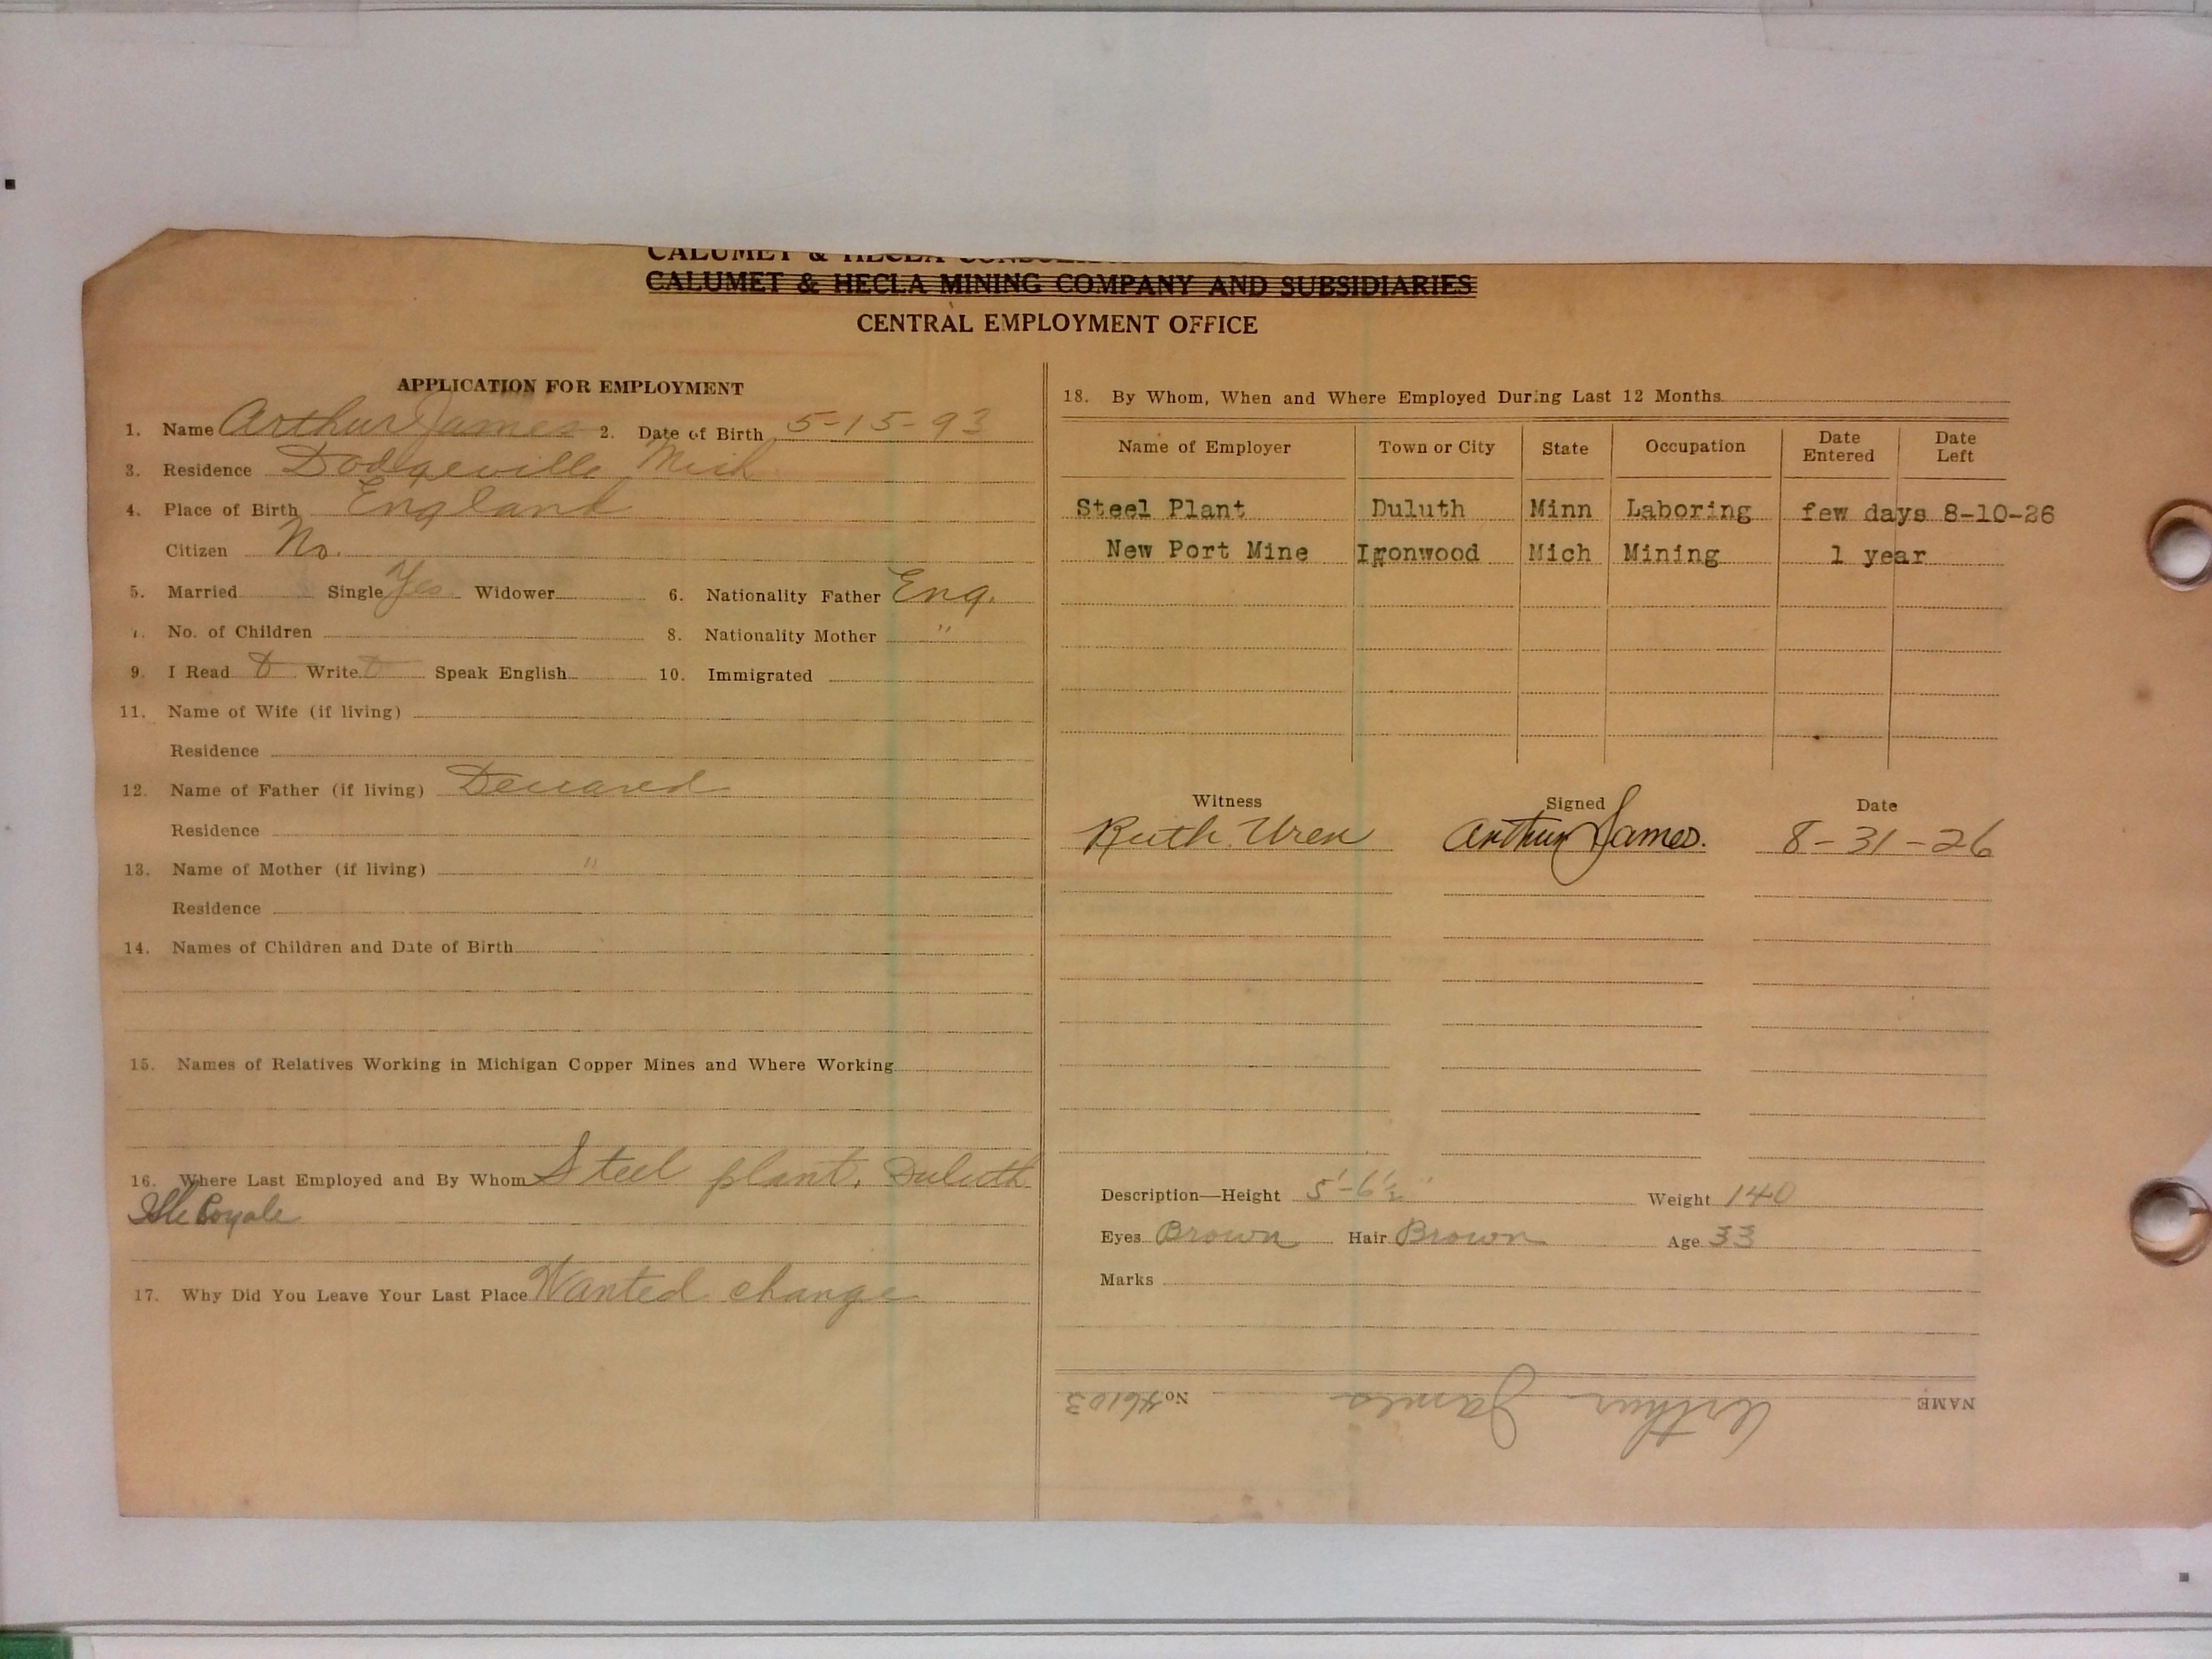 CALUMET & HECLA
CALUMET & HECLA MINING COMPANY AND SUBSIDIARIES
CENTRAL EMPLOYMENT OFFICE
APPLICATION FOR EMPLOYMENT
1. Name Arthur James 2. Date of Birth 5-15-93
3. Residence Dodgeville Mich
4. Place of Birth England
Citizen No.
5. Married Single Yes Widower 6. Nationality Father Eng.
7. No. of Children 8. Nationality Mother "
9. I Read Write Speak English 10. Immigrated
11. Name of Wife (if living)
Residence
12. Name of Father (if living) Deceased
Residence
13. Name of Mother (if living) "
Residence
14. Names of Children and Date of Birth
15. Names of Relatives Working in Michigan Copper Mines and Where Working
16. Where Last Employed and By Whom Steel plant, Duluth
Isle Royale
17. Why Did You Leave Your Last Place Wanted change
18. By Whom, When and Where Employed During Last 12 Months
Name of Employer Town or City State Occupation Date Entered Date Left
Steel Plant Duluth Minn Laboring few days 8-10-26
New Port Mine Ironwood Mich Mining 1 year
Witness Signed Date
Ruth Uren Arthur James. 8-31-26
Description—Height 5'-6½" Weight 140
Eyes Brown Hair Brown Age 33
Marks
NAME Arthur James No.